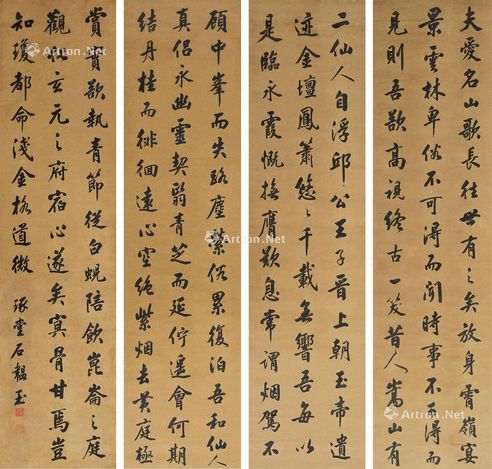 夫愛名山歌長往世有之矣放身霄嶺宴
景雲林卑俗不可淂而聞時事不可淂而
見則吾歎高視終古一笑昔人嵩山有
二仙人自浮邱公王子晉上朝玉帝遺
迹金壇鳳簫悠〻千載無響吾每以
是臨永霞慨撫膺歎息常謂烟駕不
顧中峯而失路塵縈俗累復泊吾和仙人
真侶永幽靈契翳青芝而延佇遷會何期
結丹桂而徘徊遠心空絕紫烟去黃庭極
賞賞歎執青節從白蜺陪飲崑崙之庭
觀化玄元之府宿心遂矣冥骨甘焉豈
知瓊都命淺金格道微 琢堂石韞玉
Artron.Net
Artron.Net
Artron.Net
Artron.Net